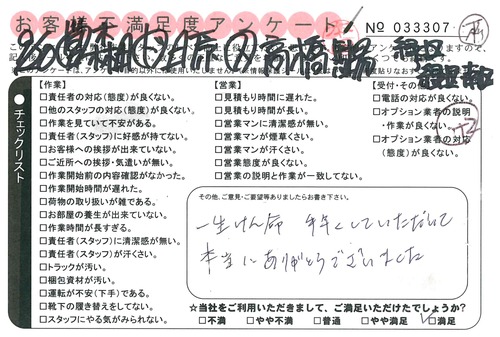 お客様不満足度アンケート
No 033307
チェックリスト
【作業】
□責任者の対応(態度)が良くない。
□他のスタッフの対応(態度)が良くない。
□作業を見ていて不安がある。
□責任者(スタッフ)に好感が持てない。
□お客様への挨拶が出来ていない。
□ご近所への挨拶・気遣いが無い。
□作業開始前の内容確認がなかった。
□作業開始時間が遅れた。
□荷物の取り扱いが雑である。
□お部屋の養生が出来ていない。
□作業時間が長すぎる。
□責任者(スタッフ)に清潔感が無い。
□責任者(スタッフ)が汗くさい。
□トラックが汚い。
□梱包資材が汚い。
□運転が不安(下手)である。
□靴下の履き替えをしてない。
□スタッフにやる気がみられない。
【営業】
□見積もり時間に遅れた。
□見積もり時間が長い。
□営業マンに清潔感が無い。
□営業マンが煙草くさい。
□営業マンが汗くさい。
□営業態度が良くない。
□営業の説明と作業が一致してない。
【受付・その
□電話の対応が良くない。
□オプション業者の説明
・作業が良くない。
□オプション業者の対応
(態度)が良くない。
その他、ご意見・ご要望等ありましたらお書き下さい。
一生けん命 手早くしていただいて
本当にありがとうございました
☆当社をご利用いただきまして、ご満足いただけたでしょうか?
□不満 □やや不満 □普通 □やや満足 □満足